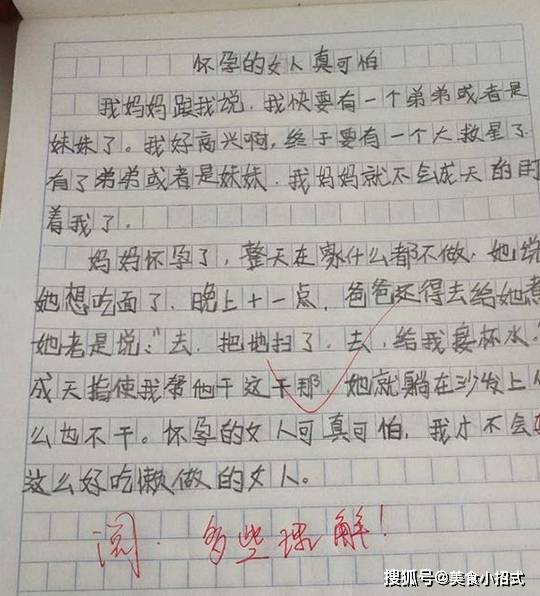 怀孕的女人真可怕
我妈妈跟我说,我快要有一个弟弟或者是
妹妹了。我好高兴啊,终于要有一个大救星了
有了弟弟或者是妹妹,我妈妈就不会成天的盯
着我了。
妈妈怀孕了,整天在家什么都不做,她说
她想吃面了,晚上十一点,爸爸还得去给她煮
她老是说:"去,把地扫了,去,给我接杯水。
成天指使我帮他干这干那,她就躺在沙发上什
么也不干。怀孕的女人可真可怕,我才不会
这么好吃懒做的女人。
阅. 多些理解!
搜狐号@美食小招式